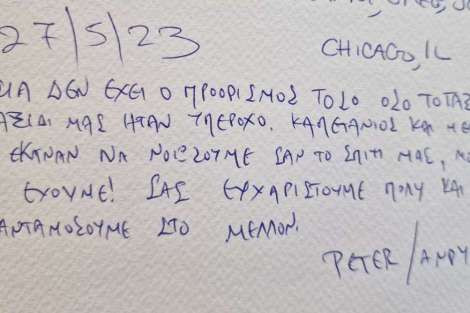 27/5/23
CHICAGO, IL
ΔΕΝ ΕΧΕΙ Ο ΠΡΟΟΡΙΣΜΟΣ ΤΟΣΟ ΟΣΟ ΤΟ ΤΑΞ
ΜΑΣ ΗΤΑΝ ΥΠΕΡΟΧΟ. ΚΑΠΕΤΑΝΙΟΣ ΚΑΙ ΜΕ
ΕΚΑΝΑΝ ΝΑ ΝΟΙΩΣΟΥΜΕ ΣΑΝ ΤΟ ΣΠΙΤΙ ΜΑΣ,
ΕΧΟΥΜΕ! ΣΑΣ ΕΥΧΑΡΙΣΤΟΥΜΕ ΠΟΛΥ ΚΑΙ
ΑΝΤΑΜΟΣΟΥΜΕ ΣΤΟ ΜΕΛΛΟΝ.
PETER/ANDY